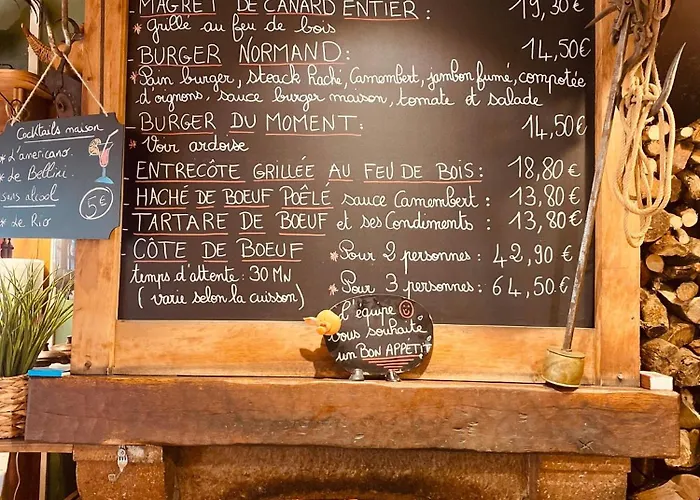 MAGRET DE CANARD ENTIER : 19,30€
* Grillé au feu de bois
- BURGER NORMAND : 14,50€
* Pain burger, steack Haché, Camembert, jambon fumé, compotée
d'oignons, sauce burger maison, tomate et salade
- BURGER DU MOMENT : 14,50€
* Voir ardoise
- ENTRECÔTE GRILLÉE AU FEU DE BOIS : 18,80€
- HACHÉ DE BOEUF POÊLÉ sauce Camembert : 13,80€
- TARTARE DE BOEUF et ses Condiments : 13,80€
- CÔTE DE BOEUF * Pour 2 personnes : 42,90€
temps d'attente : 30 MN * Pour 3 personnes : 64,50€
( varie selon la cuisson)
Cocktails maison
* L'americano.
* Le Bellini.
sans alcool
* Le Rio
5€
L'équipe
vous souhaite
un BON APPÉTIT